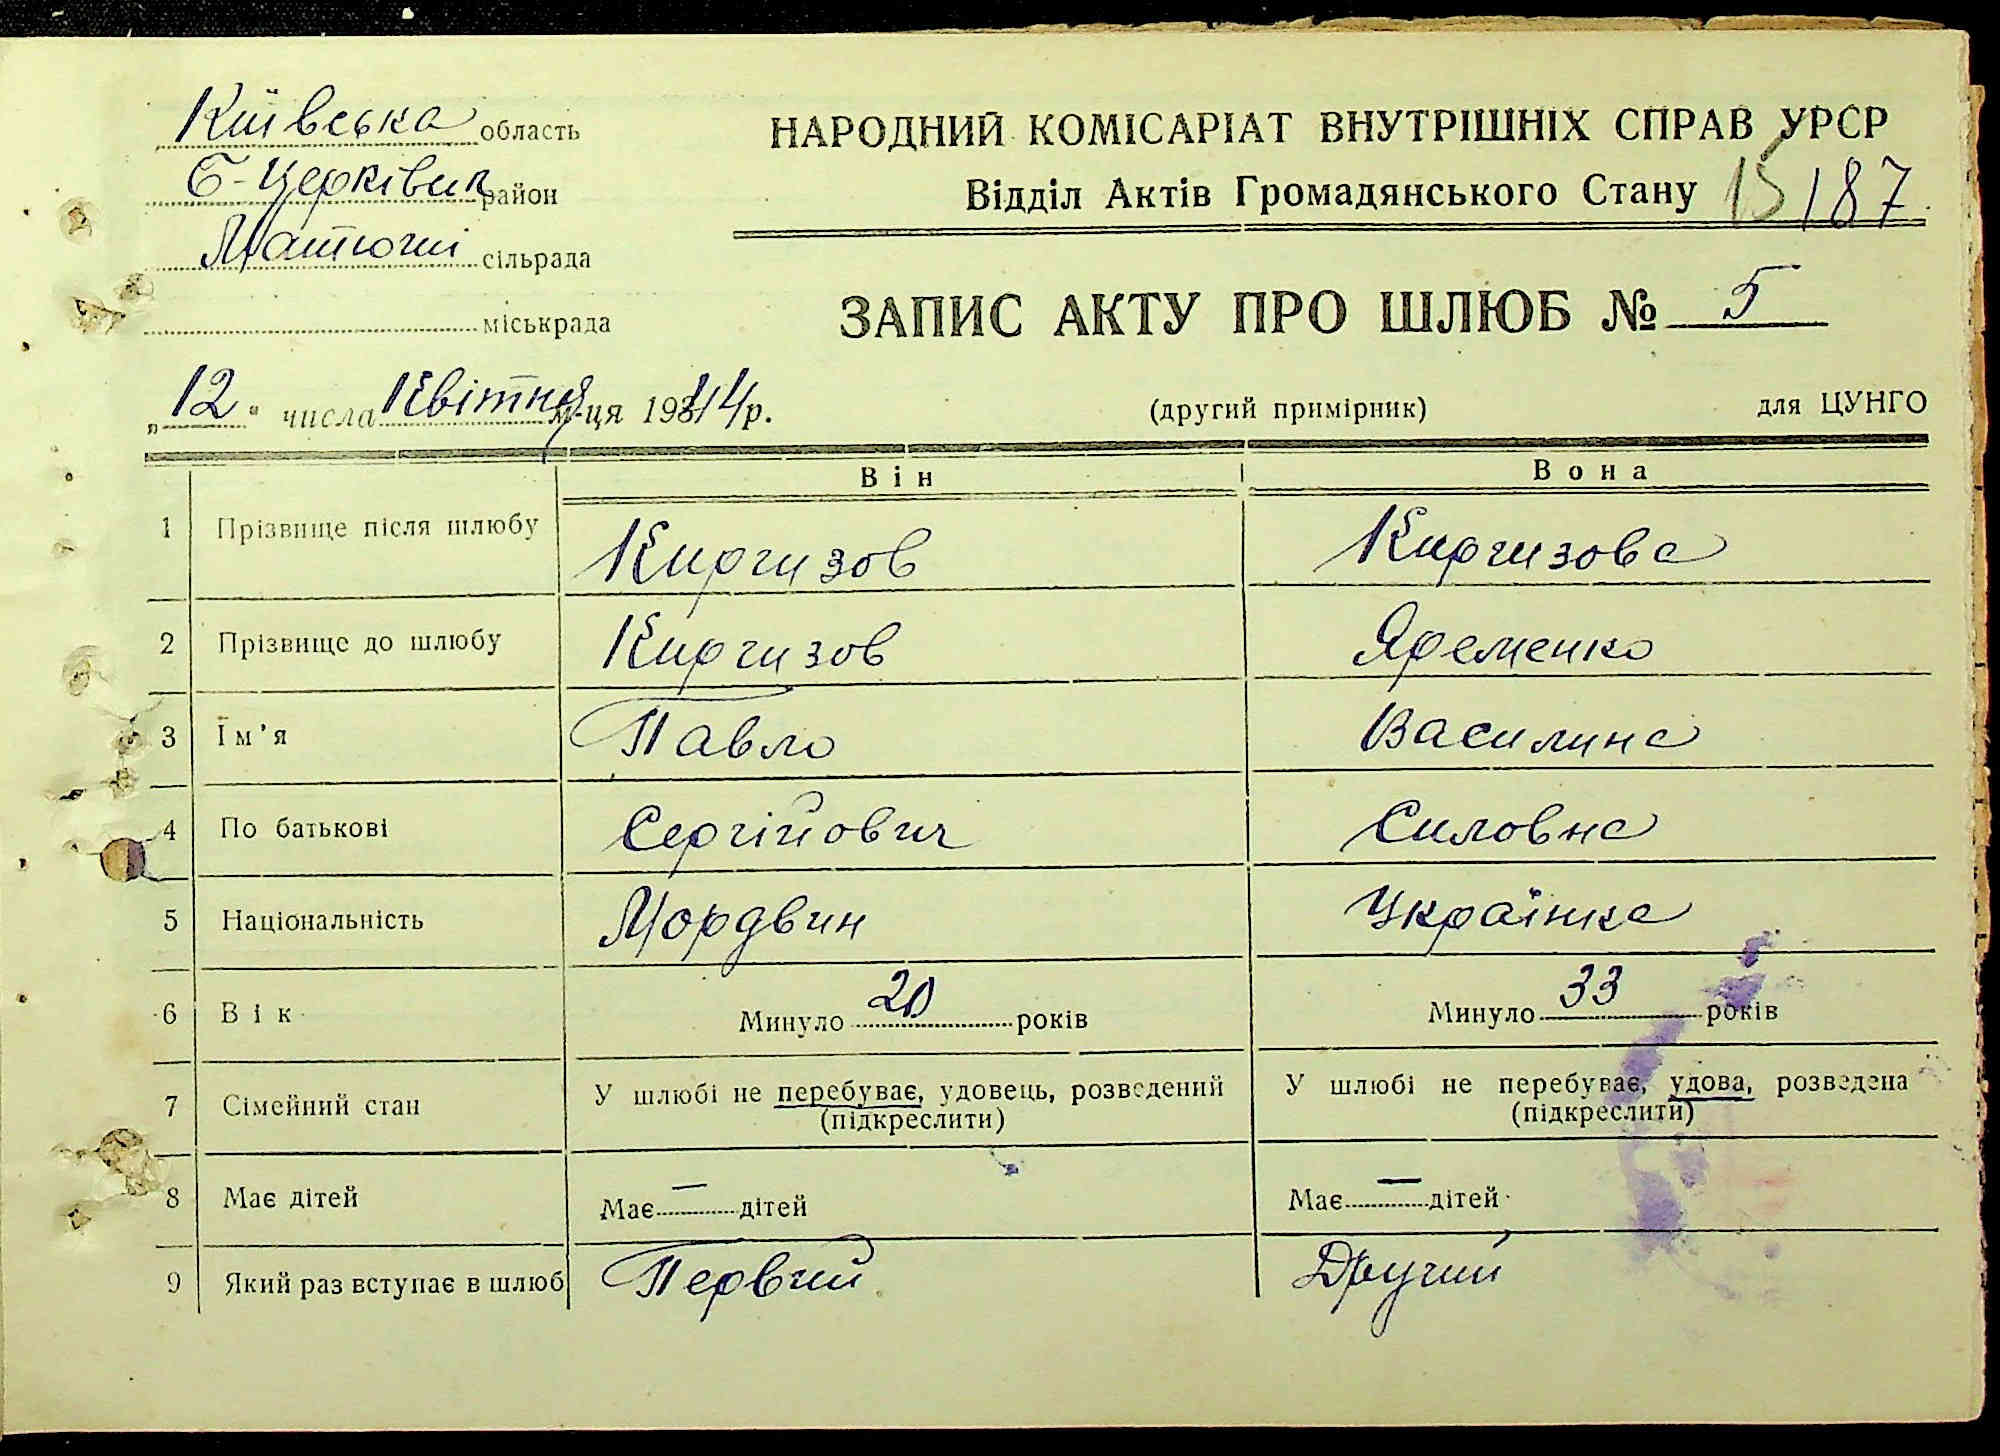 Київська область
Б-Церківск район
Матюші сільрада
міськрада
НАРОДНИЙ КОМІСАРІАТ ВНУТРІШНІХ СПРАВ УРСР
Відділ Актів Громадянського Стану 15 187
ЗАПИС АКТУ ПРО ШЛЮБ № 5
„12" числа Квітня м-ця 1944 р. (другий примірник) для ЦУНГО
Він Вона
1 Прізвище після шлюбу Киргизов Киргизова
2 Прізвище до шлюбу Киргизов Яременко
3 Їм'я Павло Василина
4 По батькові Сергійович Силовна
5 Національність Мордвин Українка
6 Вік Минуло 20 років Минуло 33 років
7 Сімейний стан У шлюбі не перебуває, удовець, розведений У шлюбі не перебуває, удова, розведена
(підкреслити) (підкреслити)
8 Має дітей Має — дітей Має — дітей
9 Який раз вступає в шлюб Первий Другий